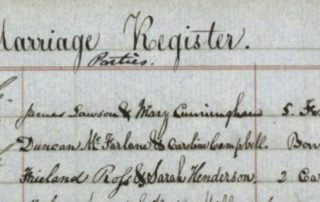 Marriage Register.
Parties.
James Lawson & Mary Cunningham 5
Duncan Mc Farlane & Caroline Campbell. Bon
Ross & Sarah Henderson. 2 Ca